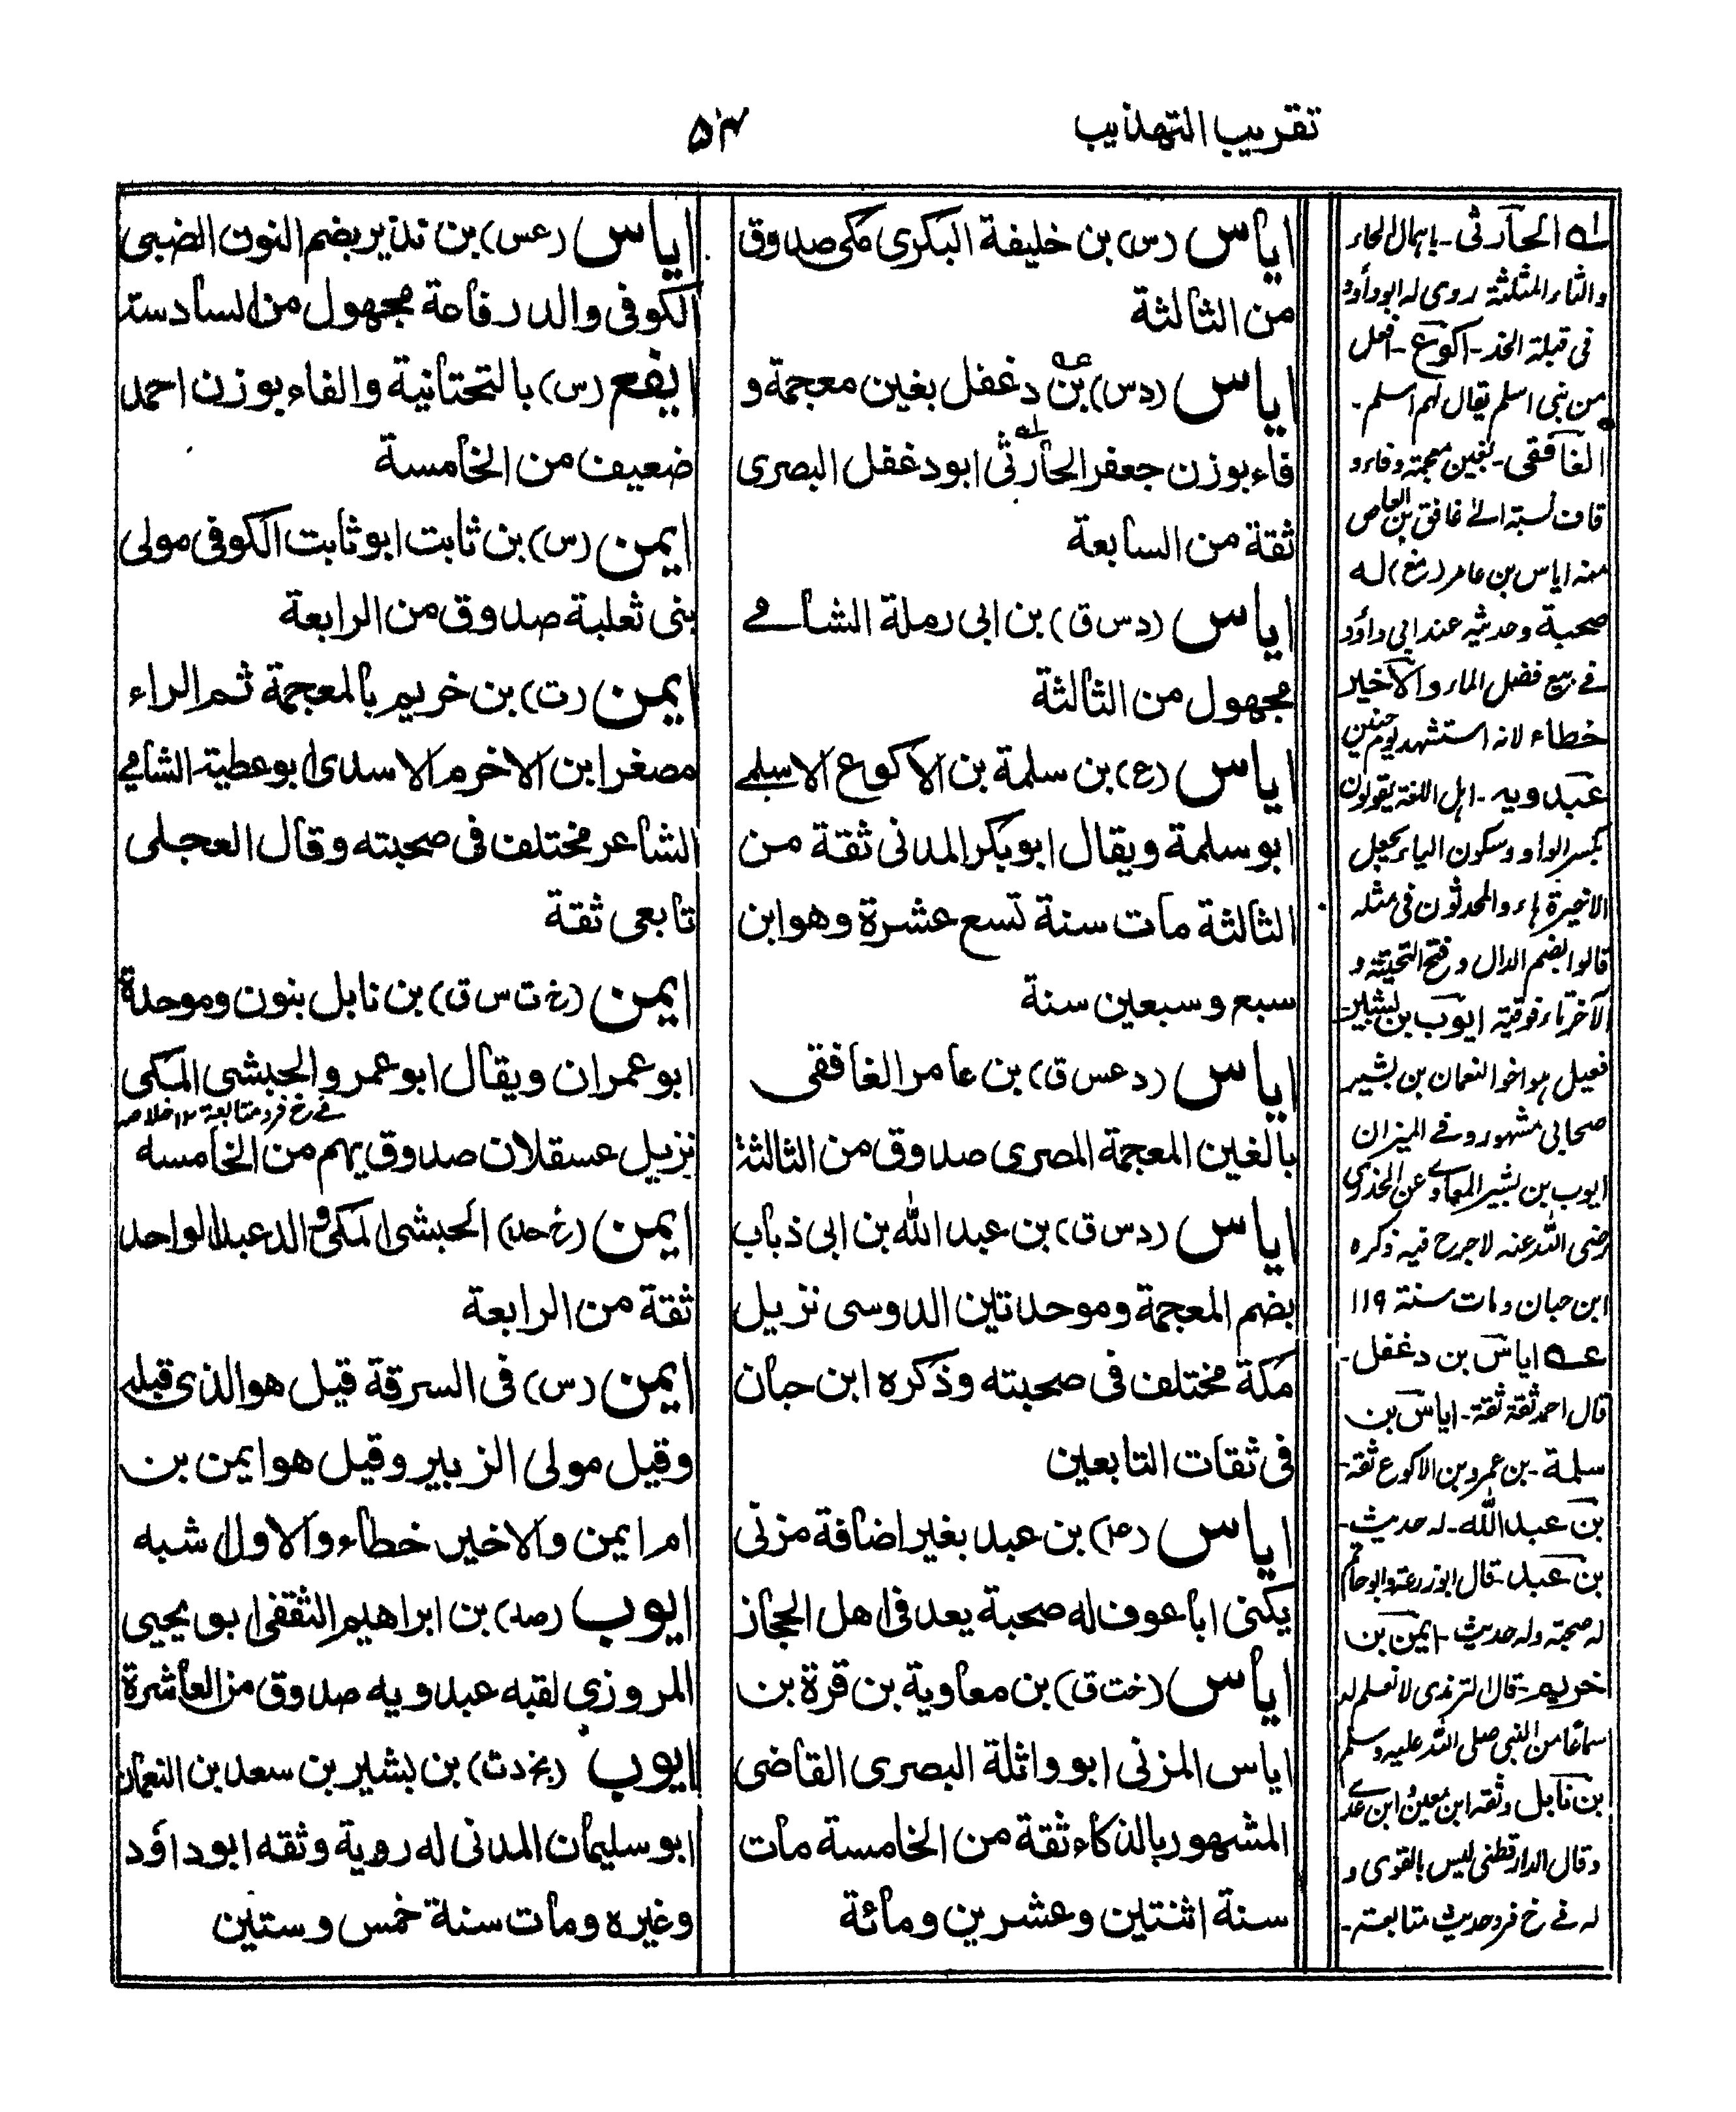 تقريب التهذيب
۵۴
اياس (س) بن خليفة البكرى مكى صدوق
من الثالثة
اياس (دس) بن دغفل بغين معجمة و
فاء بوزن جعفر الحارثى ابو دغفل البصرى
ثقة من السابعة
اياس (دس ق) بن ابى رملة الشامے
مجهول من الثالثة
اياس (ع) بن سلمة بن الاكوع الاسلمے
ابو سلمة ويقال ابو بكر المدنى ثقة من
الثالثة مات سنة تسع عشرة وهو ابن
سبع و سبعين سنة
اياس (د عس ق) بن عامر الغافقى
بالغين المعجمة المصرى صدوق من الثالثة
اياس (دس ق) بن عبد الله بن ابى ذباب
بضم المعجمة وموحدتين الدوسى نزيل
مكة مختلف فى صحبته وذكره ابن حبان
فى ثقات التابعين
اياس (عه) بن عبد بغير اضافة مزنى
يكنى ابا عوف له صحبة يعد فى اهل الحجاز
اياس (خت ق) بن معاوية بن قرة بن
اياس المزنى ابو واثلة البصرى القاضى
المشهور بالذكاء ثقة من الخامسة مات
سنة اثنتين وعشرين ومائة
اياس (عس) بن نذير بضم النون الضبى
الكوفى والد رفاعة مجهول من السادسة
ايفع (س) بالتحتانية والفاء بوزن احمد
ضعيف من الخامسة
ايمن (س) بن ثابت ابو ثابت الكوفى مولى
بنى ثعلبة صدوق من الرابعة
ايمن (ت) بن خريم بالمعجمة ثم الراء
مصغرا بن الاخرم الاسدى ابو عطية الشامے
الشاعر مختلف فى صحبته وقال العجلى
تابعى ثقة
ايمن (خ ت س ق) بن نابل بنون وموحدة
ابو عمران ويقال ابو عمرو الحبشى المكى
فے خ فرد متابعة ١٢ خلاصه
نزيل عسقلان صدوق يهم من الخامسه
ايمن (خ صد) الحبشى المكى والد عبد الواحد
ثقة من الرابعة
ايمن (س) فى السرقة قيل هو الذى قبله
وقيل مولى الزبير وقيل هو ايمن بن
ام ايمن والاخير خطاء والاول شبه
ايوب (صد) بن ابراهيم الثقفى ابو يحيى
المروزى لقبه عبدويه صدوق من العاشرة
ايوب (بخ دت) بن بشير بن سعد بن النعمان
ابو سليمان المدنى له روية وثقه ابو داؤد
وغيره ومات سنة خمس وستين
له الحارثى - باہمال الحاء
والثاء المثلثة روى له ابو داؤد
فى قبلة الخد - اكوع - افعل
من بنى اسلم يقال لهم اسلم -
الغافقى - بغين معجمة وفاء و
قاف نسبة الے غافق بن العاص
منه اياس بن عامر () له
صحبة وحديثه عند ابى داؤد
فے بيع فضل الماء والاخير
خطاء لانه استشهد يوم حنين
عبدويه - اہل اللغة يقولون
بكسر الواو وسكون الياء بجعل
الاخيرة ہاء والمحدثون فى مثله
قالوا بضم الدال و فتح التحتية و
الآخر تاء فوقية ايوب بن بشير -
فعيل ہو اخو النعمان بن بشير
صحابى مشهور وفے الميزان
ايوب بن بشير المعاوے عن الخدرى
رضى الله عنه لا جرح فيه ذكره
ابن حبان ومات سنة ١١٩
عه اياس بن دغفل -
قال احمد ثقة ثقة - اياس بن
سلمة - بن عمرو بن الاكوع ثقة -
بن عبد الله - له حديث -
بن عبد - قال ابو زرعة وابو حاتم
له صحبة وله حديث - ايمن بن
خريم - قال الترمذى لا نعلم له
سماعا من النبى صلى الله عليه وسلم
بن نابل وثقه ابن معين ابن عدے
وقال الدارقطنى ليس بالقوى و
له فے خ فرد حديث متابعة -